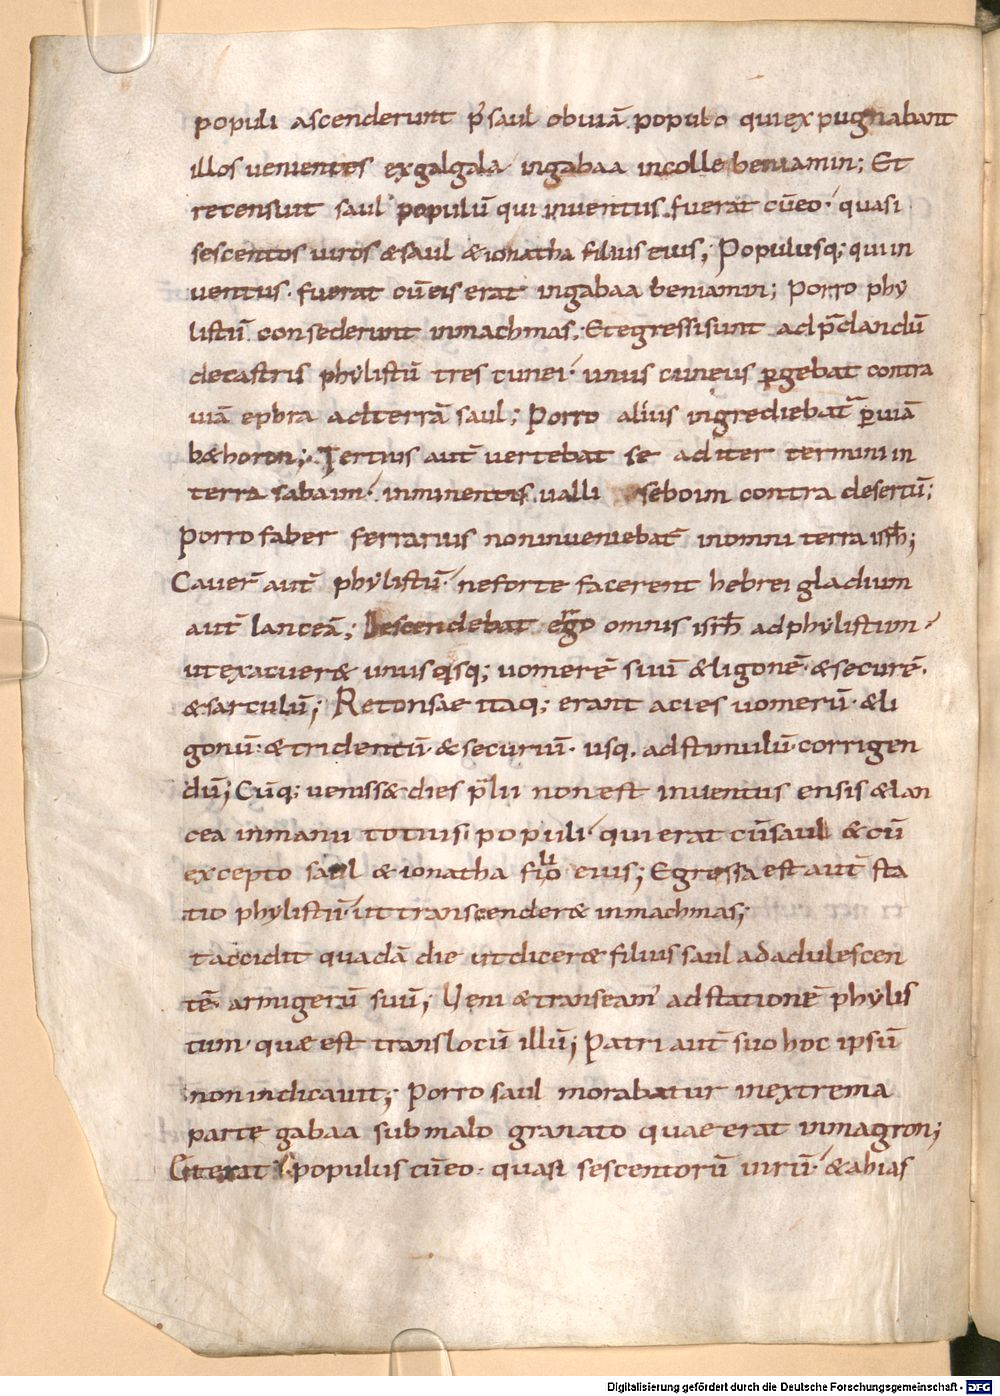 populi ascenderunt p̄ saul obuiā populo qui expugnabant
illos uenientes exgalgala ingabaa incolle beniamin; Et
recensuit saul populū qui inuentus fuerat cūeo· quasi
sescentos uiros & saul & ionatha filius eius; Populusq; qui in
uentus· fuerat cūeis erat ingabaa beniamin; Porro phy
listiī consederunt inmachmas; Et egressi sunt ad p̄dandū
decastris phylistiī tres cunei· unus cuneus pergebat contra
uiā ephra adterrā saul; Porro alius ingrediebat̄ ꝑuiā
b&horon; Tertius aut̄ uertebat se aditer termini in
terra sabaim· inminentis ualli seboim contra desertū;
Porro faber ferrarius noninueniebat̄ inomni terra isrł;
Cauer̄ aut̄ phylistiī· neforte facerent hebrei gladium
aut̄ lanceā; Descendebat ergo omnis isrł adphylistiim·
utexacuer& unusqisq; uomerē suū & ligonē· & securē·
& sarculū; Retonsae itaq; erant acies uomerū· & li
gonū· & tridentū· & securiū· usq. adstimulū· corrigen
dū; Cūq; uenisS& dies p̄lii non est inuentus ensis & lan
cea inmanu totius populi· qui erat cūsaul & cū
excepto saul & ionatha filio eius; Egressa est aut̄ sta
tio phylistiī· ut transcender& inmachmas;
t accidit quadā die ut dicer& filius saul ad adulescen
tē· armigerū suū; Ueni & transeam' ad stationē phylis
tiim· quae est translocū illū; Patri aut̄ suo hoc ipsū
non indicauit; Porro saul morabatur inextrema
parte gabaa sub malo granato quae erat inmagron;
Et erat populus cūeo· quasi sescentorū uirū· & ahias
Digitalisierung gefördert durch die Deutsche Forschungsgemeinschaft - DFG